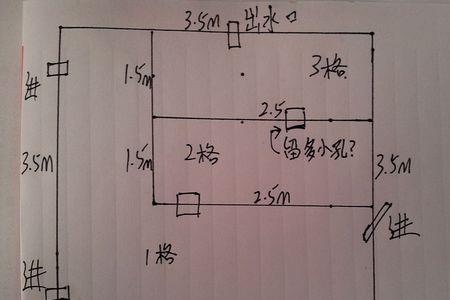 3.5M
出水口
进
1.5m
3格
2.5
留多小孔?
1.5m
2格
3.5m
3.5M
2.5M
进
1格
进